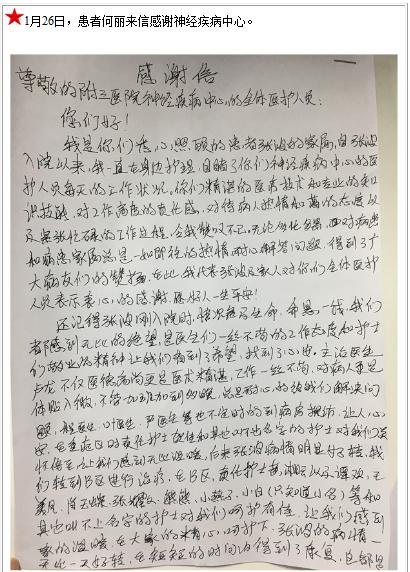 1月26日，患者何丽来信感谢神经疾病中心。
感谢信
尊敬的附三医院神经疾病中心的全体医护人员：
你们好！
我是你们悉心照顾的患者张波的家属，自张波
入院以来，我一直在身边护理，目睹了你们神经疾病中心的医
护人员每天的工作状况，你们精湛的医疗技术和专业的知
识技能，对工作高度的责任感，对待病人热情和蔼的态度以
及紧张忙碌的工作过程，令我赞叹不已。无论何化名器，面对病患
和病患家属总是一如既往的热情耐心解答问题，得到了广
大病友们的赞扬，在此，我代表张波及家人对你们全体医护
人员表示衷心的感谢，愿好人一生平安！
还记得张波刚入院时，情况危急生命，希望一线，我们
都感到无比的绝望，是医生们一丝不苟的工作态度和护士
们敬业的精神让我们看到了希望，找到了心安。主治医生
卢龙不仅医德高尚更是医术精湛，工作一丝不苟，对病人更是
体贴入微，不管加班加到多晚，总是耐心的给我们解决问
题，医生、叶医生、严医生等也不定时的到病房探访，让人心
安，在重症区的责任护士和其他叫不出名字的护士对我们关
怀倍至，让我们感到无比温暖，后来张波病情明显好转，我
们转到B区进行治疗，在B区，责任护士
小燕子、小白（只知道小名）等和
其他叫不上名字的护士对我们呵护有佳，让我们感到
家的温暖，在大家的精心呵护下，张波的病情一
天比一天好转，在短短的时间内得到了康复，